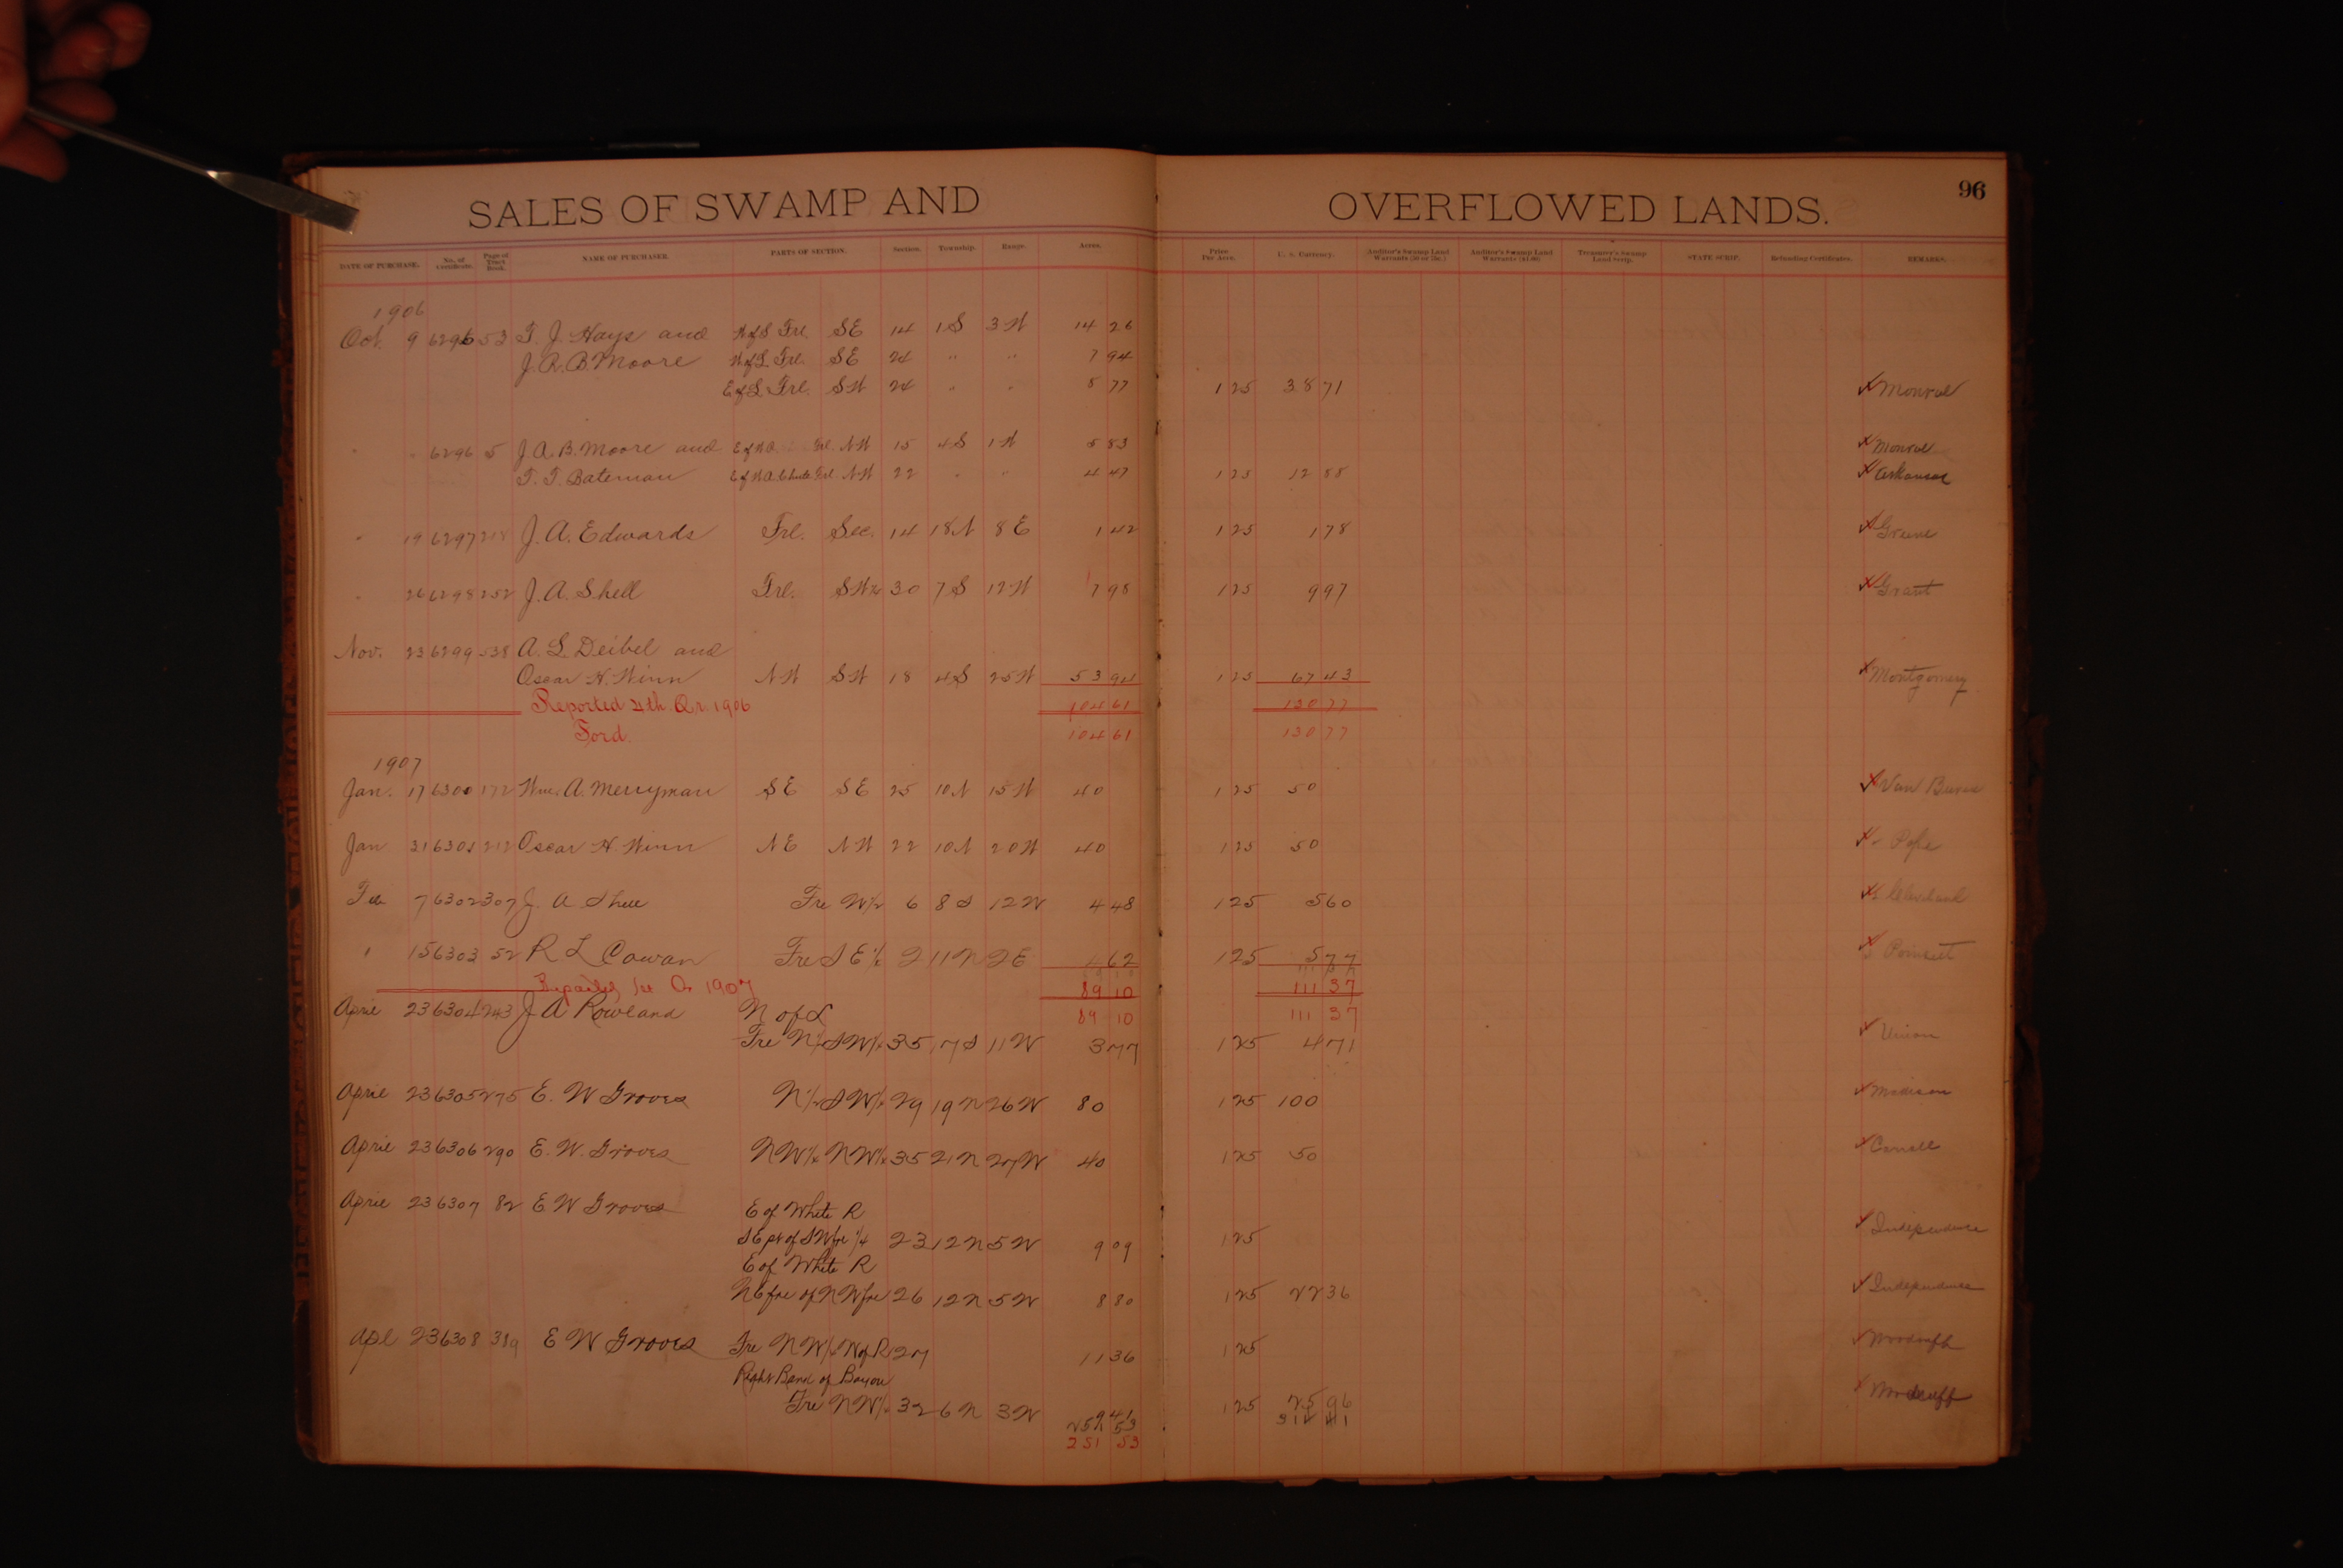 SALES OF SWAMP AND OVERFLOWED LANDS. 96
DATE OF PURCHASE. No. of Certificate. Page of Tract Book. NAME OF PURCHASER. PARTS OF SECTION. Section. Township. Range. Acres. Price Per Acre. U. S. Currency. Auditor's Swamp Land Warrants (50 or 75c.) Auditor's Swamp Land Warrants ($1.00) Treasurer's Swamp Land Scrip. STATE SCRIP. Refunding Certificates. REMARKS.
1906
Oct. 9 6296 53 T. J. Hays and Frl. SE 14 1S 3W 14 26
J. R. B. Moore Frl. SE 24 " " 7 94
Frl. SW 24 " " 8 77 1 25 38 71 Monroe
" " 6296 5 J. A. B. Moore and Frl. NW 15 4S 1W 5 83 Monroe
T. T. Bateman E of W A Chute Frl. NW 22 " " 4 47 1 25 12 88 Arkansas
" 19 6297 218 J. A. Edwards Frl. Sec. 14 18N 8E 1 42 1 25 1 78 Greene
" 26 6298 252 J. A. Shell Frl. SW¼ 30 7S 12W 7 98 1 25 9 97 Grant
Nov. 23 6299 538 A. L. Deibel and
Oscar H. Winn NW SW 18 4S 25W 53 94 1 25 67 43 Montgomery
Reported 4th. Qr. 1906 104 61 130 77
Ford. 104 61 130 77
1907
Jan. 17 6300 172 Wm. A. Merryman SE SE 25 10N 15W 40 1 25 50 Van Buren
Jan 31 6301 212 Oscar H. Winn NE NW 22 10N 20W 40 1 25 50 Pope
Feb 7 6302 307 J. A Shell Fre W½ 6 8S 12W 4 48 1 25 5 60 Cleveland
" 15 6303 52 R L Cowan Fre SE¼ 2 11N 2E 4 62 1 25 5 77 Poinsett
Reported 1st Qr 1907 89 10 111 37
April 23 6304 243 J A Rowland N of L 89 10 111 37
Fre N½ SW¼ 35 17S 11W 3 77 1 25 4 71 Union
April 23 6305 275 E. W Groves N½ SW¼ 29 19N 26W 80 1 25 100 Madison
April 23 6306 290 E. W. Groves NW¼ NW¼ 35 21N 27W 40 1 25 50 Carroll
April 23 6307 82 E W Groves E of White R
SE pt of SW fre ¼ 23 12N 5W 9 09 1 25 Independence
E of White R
NE fre of NW fre 26 12N 5W 8 80 1 25 22 36 Independence
Apl 23 6308 389 E W Groves Fre NW¼ W of R 27 11 36 1 25 Woodruff
Right Bank of Bayou
Fre NW¼ 32 6N 3W 9 41 1 25 25 96 Woodruff
53 314 41
251 53